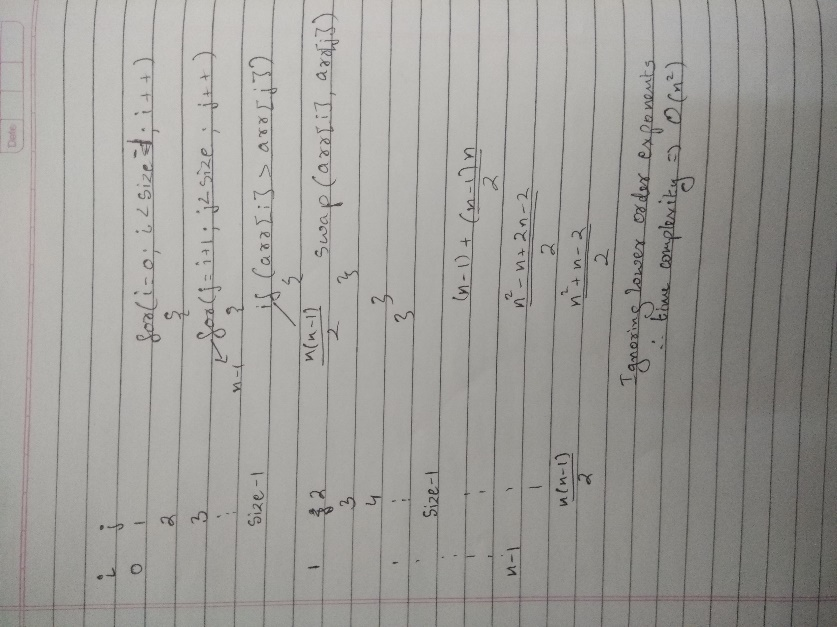 Date
i j
0 1
2
3
⋮
Size-1
1 2
3
4
⋮
Size-1
n-1
1
n(n-1)/2
for(i=0; i<size; i++)
{
for(j=i+1; j<size; j++)
n-1 {
if (arr[i] > arr[j])
{
n(n-1)/2 swap(arr[i], arr[j])
}
}
}
(n-1) + (n-1)n/2
n²-n+2n-2/2
n²+n-2/2
Ignoring lower order exponents
∴ time complexity ⇒ O(n²)